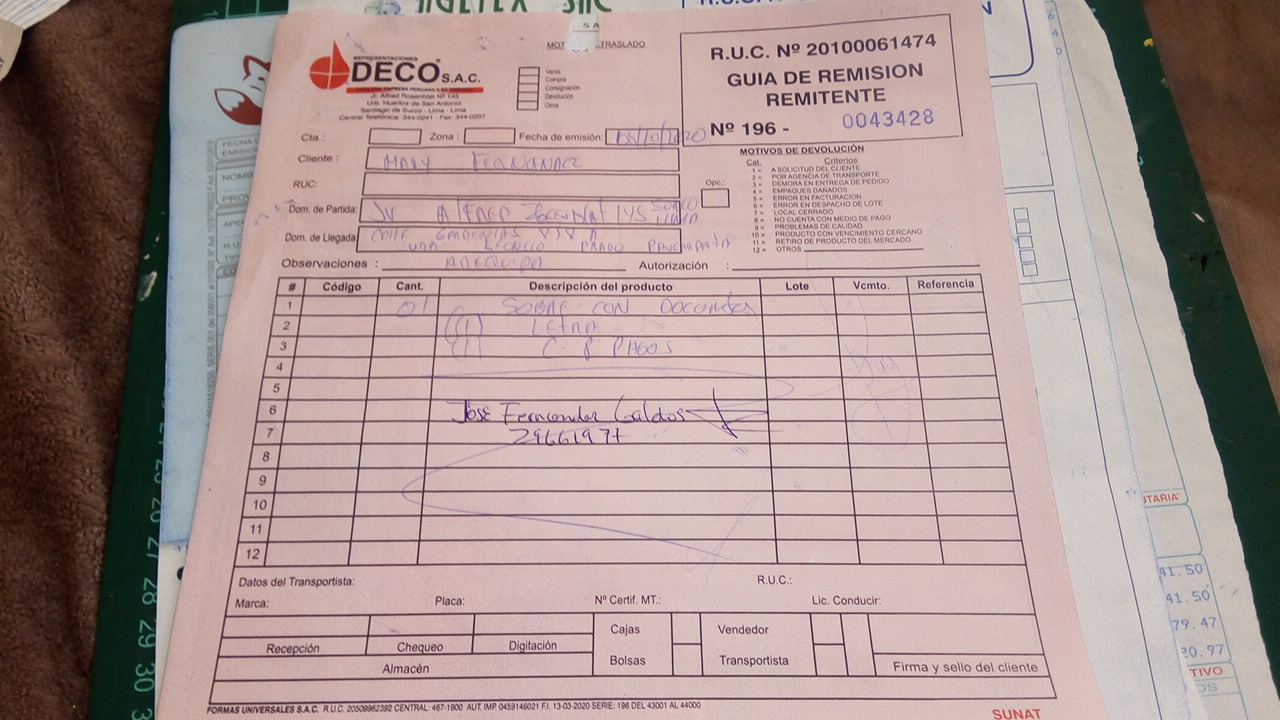 S A
MOT TRASLADO
REPRESENTACIONES
DECO S.A.C.
Jr. Alfred Rosenblat Nº 145
Urb. Huertos de San Antonio
Santiago de Surco - Lima - Lima
Central Telefónica: 344-0241 - Fax: 344-0207
Venta
Compra
Consignación
Devolución
Otros
R.U.C. Nº 20100061474
GUIA DE REMISION
REMITENTE
Nº 196 - 0043428
Cta.: Zona : Fecha de emisión:
Cliente : MARY FERNANDEZ
RUC:
Opc.:
Dom. de Partida: Jr 145 SURCO
LIMA
Dom. de Llegada: CALLE
LEONCIO PRADO PAUCARPATA
Observaciones : AREQUIPA Autorización :
MOTIVOS DE DEVOLUCIÓN
Cat. Criterios
1 = A SOLICITUD DEL CLIENTE
2 = POR AGENCIA DE TRANSPORTE
3 = DEMORA EN ENTREGA DE PEDIDO
4 = EMPAQUES DAÑADOS
5 = ERROR EN FACTURACION
6 = ERROR EN DESPACHO DE LOTE
7 = LOCAL CERRADO
8 = NO CUENTA CON MEDIO DE PAGO
9 = PROBLEMAS DE CALIDAD
10 = PRODUCTO CON VENCIMIENTO CERCANO
11 = RETIRO DE PRODUCTO DEL MERCADO
12 = OTROS
# Código Cant. Descripción del producto Lote Vcmto. Referencia
1 01 SOBRE CON
2 (1) LETRA
3 (1) C. P. PAGOS
4
5
6 José Fernandez Galdos
7 29661977
8
9
10
11
12
Datos del Transportista: R.U.C.:
Marca: Placa: Nº Certif. MT.: Lic. Conducir:
Recepción Chequeo Digitación
Almacén
Cajas
Bolsas
Vendedor
Transportista
Firma y sello del cliente
FORMAS UNIVERSALES S.A.C. R.U.C. 20509962392 CENTRAL: 467-1900 AUT. IMP. 0459146021 F.I. 13-03-2020 SERIE: 196 DEL 43001 AL 44000
SUNAT
41.50
41.50
79.47
20.97
TIVO
26
27
28
29
30